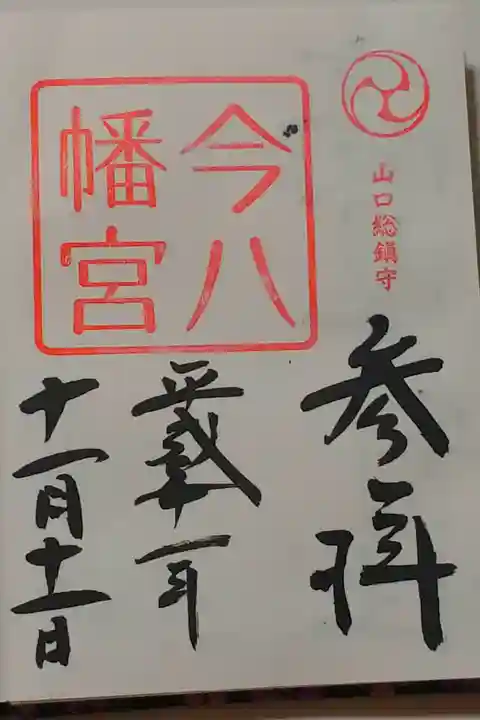 山口総鎮守
参拝
今八
幡宮
平成二十一年
十一月十一日